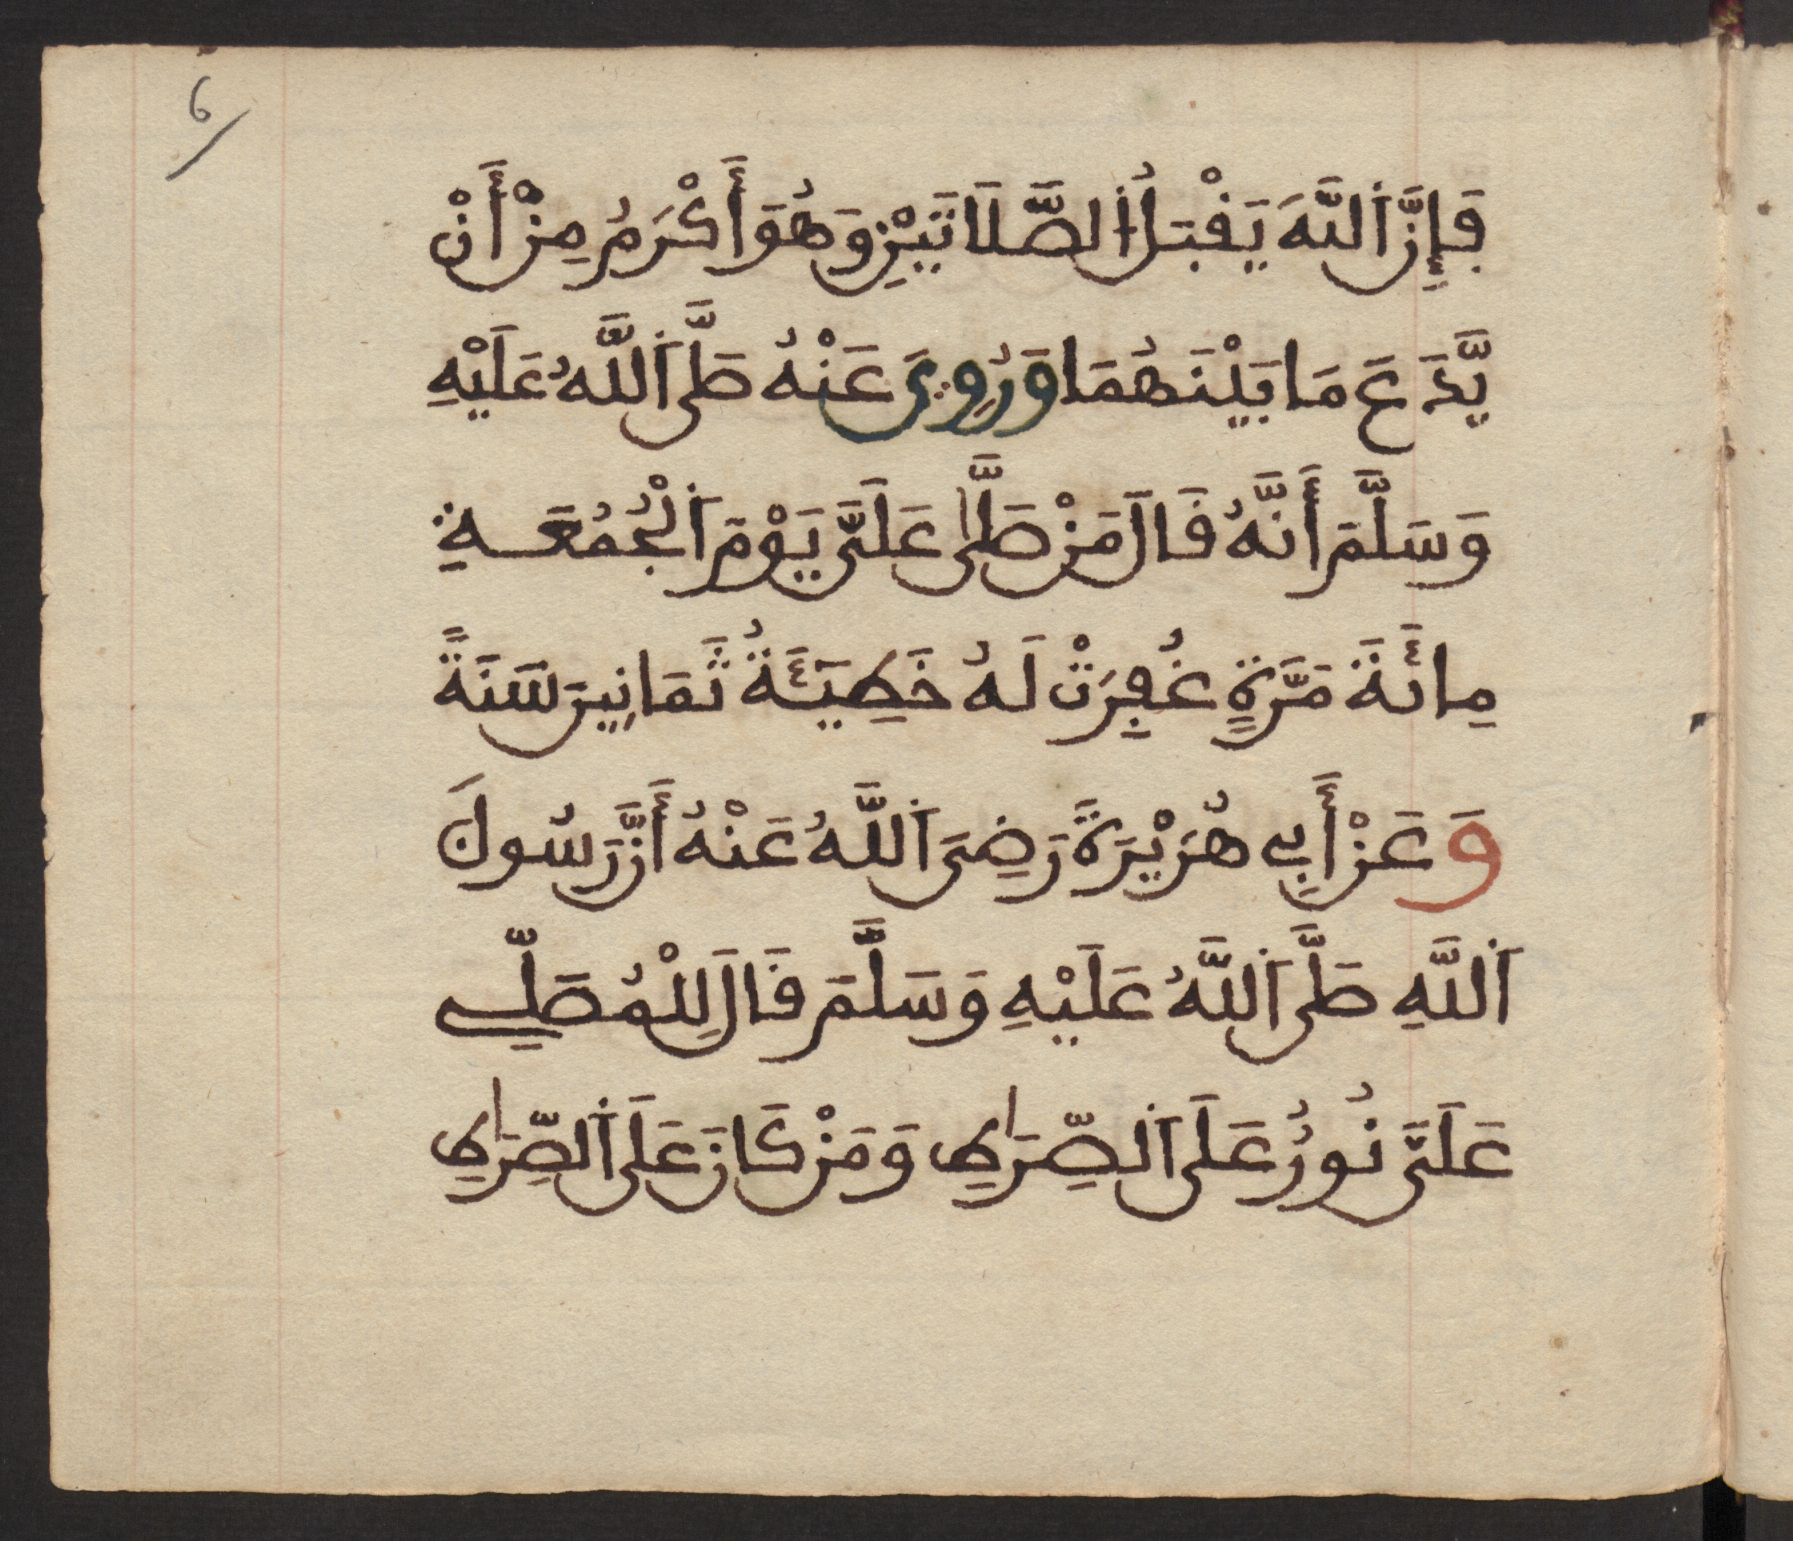 6
فَإِنَّ ٱللَّهَ يَقْبَلُ ٱلصَّلَاتَيْنِ وَهُوَ أَكْرَمُ مِنْ أَنْ
يَّدَعَ مَا بَيْنَهُمَا وَرُوِيَ عَنْهُ صَلَّى ٱللَّهُ عَلَيْهِ
وَسَلَّمَ أَنَّهُ قَالَ مَنْ صَلَّى عَلَيَّ يَوْمَ ٱلْجُمُعَةِ
مِائَةَ مَرَّةٍ غُفِرَتْ لَهُ خَطِيئَةُ ثَمَانِينَ سَنَةً
وَعَنْ أَبِي هُرَيْرَةَ رَضِيَ ٱللَّهُ عَنْهُ أَنَّ رَسُولَ
ٱللَّهِ صَلَّى ٱللَّهُ عَلَيْهِ وَسَلَّمَ قَالَ لِلْمُصَلِّي
عَلَيَّ نُورٌ عَلَى ٱلصِّرَاطِ وَمَنْ كَانَ عَلَى ٱلصِّرَاطِ